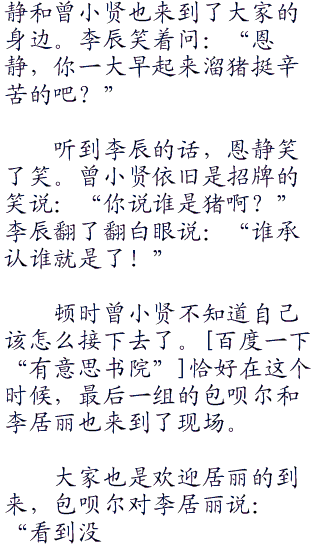 静和曾小贤也来到了大家的
身边。李辰笑着问：“恩
静，你一大早起来溜猪挺辛
苦的吧？”
听到李辰的话，恩静笑
了笑。曾小贤依旧是招牌的
笑说：“你说谁是猪啊？”
李辰翻了翻白眼说：“谁承
认谁就是了！”
顿时曾小贤不知道自己
该怎么接下去了。[百度一下
“有意思书院”]恰好在这个
时候，最后一组的包呗尔和
李居丽也来到了现场。
大家也是欢迎居丽的到
来，包呗尔对李居丽说：
“看到没